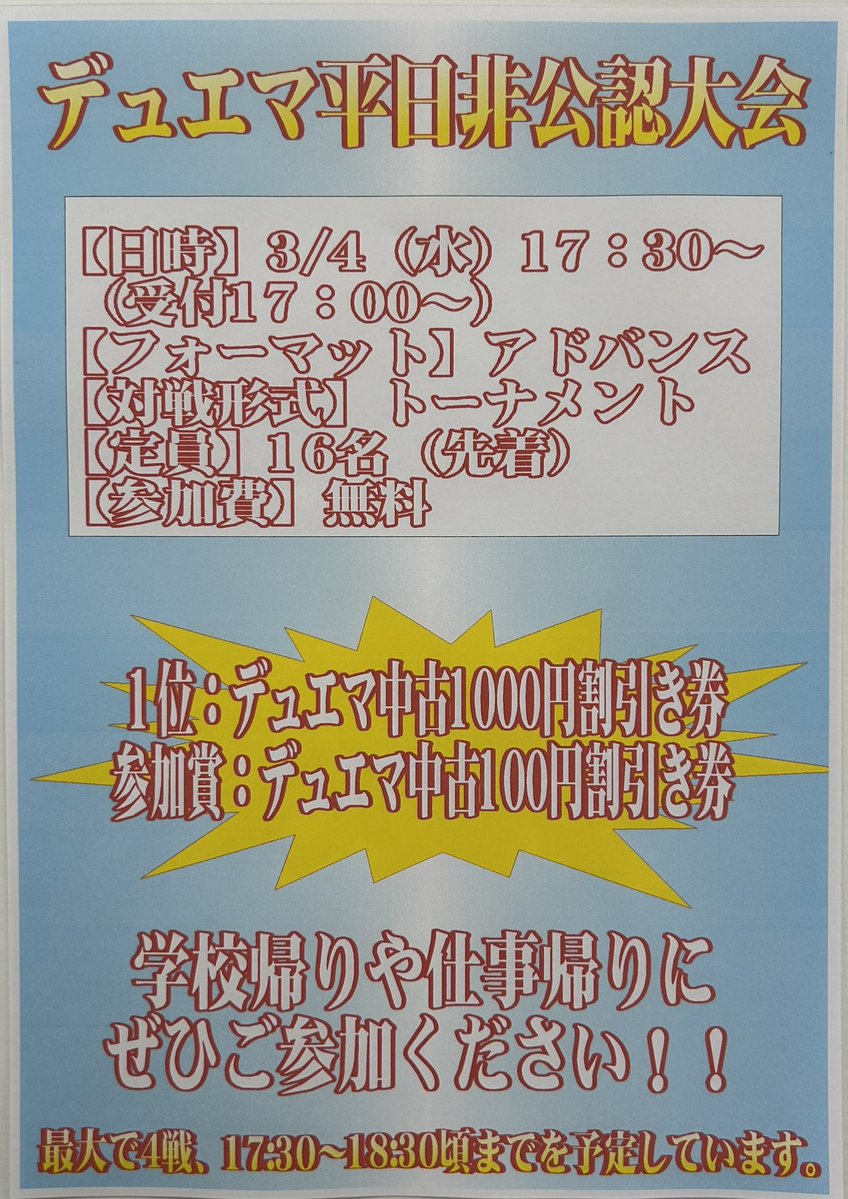 デュエマ平日非公認大会
【日時】3/4（水）17：30～
（受付17：00～）
【フォーマット】アドバンス
【対戦形式】トーナメント
【定員】16名（先着）
【参加費】無料
1位：デュエマ中古1000円割引き券
参加賞：デュエマ中古100円割引き券
学校帰りや仕事帰りに
ぜひご参加ください！！
最大で4戦、17:30～18:30頃までを予定しています。